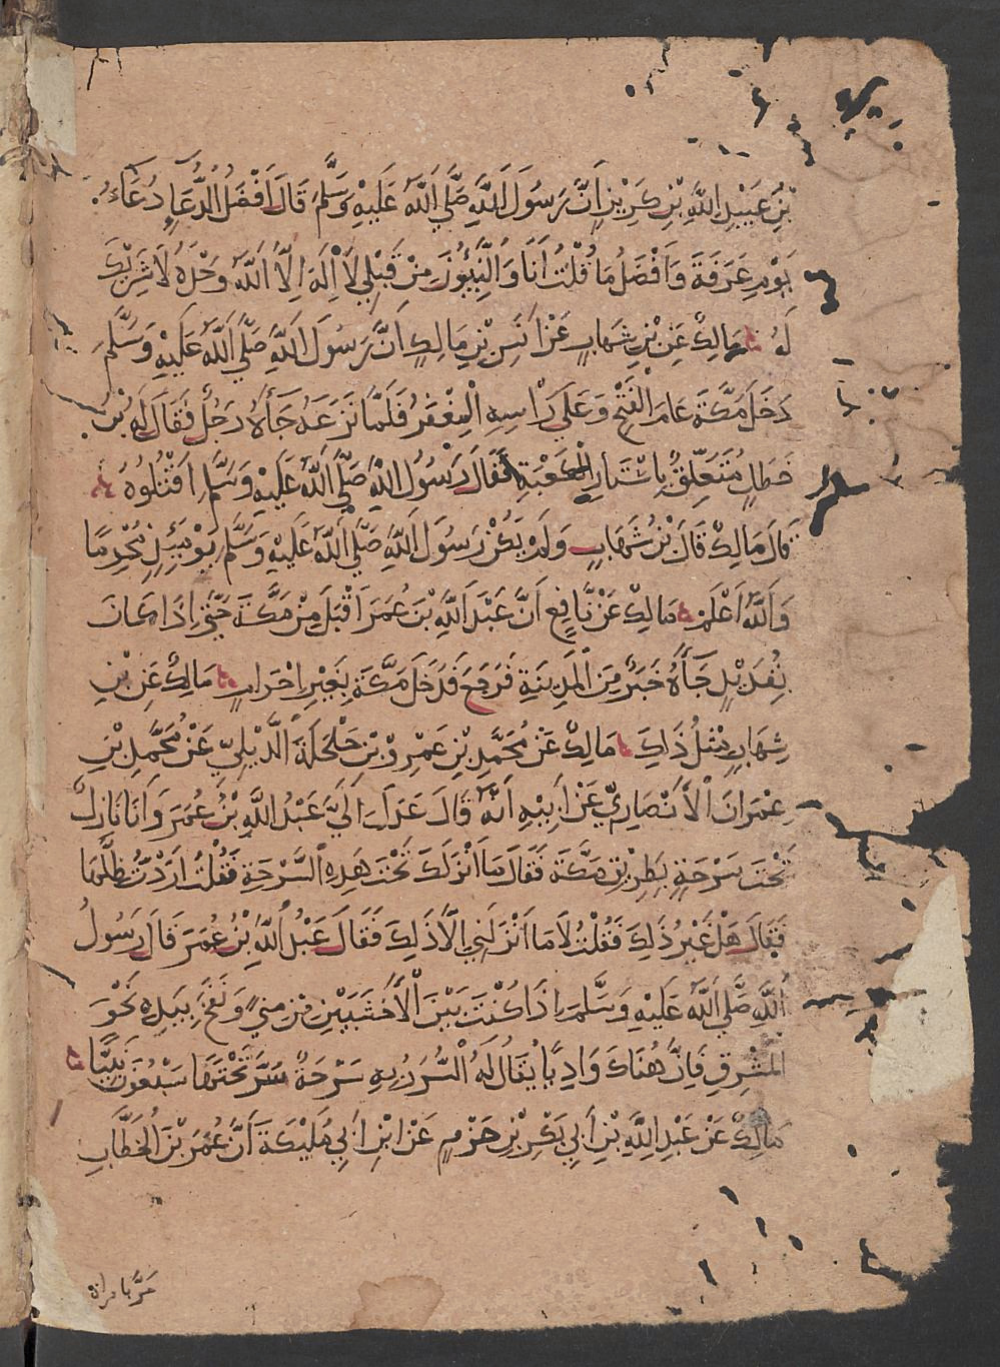 بْنِ عُبَيْدِ اللَّهِ بْنِ كَرِيْزٍ أَنَّ رَسُولَ اللَّهِ صَلَّي اللَّهُ عَلَيْهِ وَسَلَّمَ قَالَ أَفْضَلُ الدُّعَاءِ دُعَاءُ
يَوْمِ عَرَفَةَ وَأَفْضَلُ مَا قُلْتُ أَنَا وَالنَّبِيُّونَ مِنْ قَبْلِي لَا إِلَهَ إِلَّا اللَّهُ وَحْدَهُ لَا شَرِيْكَ
لَهُ مَالِكٌ عَنِ بْنِ شِهَابٍ عَنْ أَنَسِ بْنِ مَالِكٍ أَنَّ رَسُولَ اللَّهِ صَلَّي اللَّهُ عَلَيْهِ وَسَلَّمَ
دَخَلَ مَكَّةَ عَامَ الْفَتْحِ وَعَلَى رَأْسِهِ الْمِغْفَرُ فَلَمَّا نَزَعَهُ جَأَهُ رَجُلٌ فَقَالَ لَهُ بْنُ
خَطَلٍ مُتَعَلِّقٌ بِأَسْتَارِ الْكَعْبَةِ فَقَالَ رَسُولُ اللَّهِ صَلَّي اللَّهُ عَلَيْهِ وَسَلَّمَ اقْتُلُوهُ
قَالَ مَالِكٌ قَالَ بْنُ شِهَابٍ وَلَمْ يَكُنْ رَسُولُ اللَّهِ صَلَّي اللَّهُ عَلَيْهِ وَسَلَّمَ يَوْمَئِذٍ مُحْرِمًا
وَاللَّهُ أَعْلَمُ مَالِكٌ عَنْ نَافِعٍ أَنَّ عَبْدَ اللَّهِ بْنَ عُمَرَ أَقْبَلَ مِنْ مَكَّةَ حَتَّي إِذَا كَانَ
بِقُدَيْدٍ جَأَهُ خَبَرٌ مِنَ الْمَدِيْنَةِ فَرَجَعَ فَدَخَلَ مَكَّةَ بِغَيْرِ إِحْرَامٍ مَالِكٌ عَنِ بْنِ
شِهَابٍ مِثْلُ ذَلِكَ مَالِكٌ عَنْ مُحَمَّدِ بْنِ عَمْرِو بْنِ حَلْحَلَةَ الدِّيْلِيِّ عَنْ مُحَمَّدِ بْنِ
عِمْرَانَ الْأَنْصَارِيِّ عَنْ أَبِيْهِ أَنَّهُ قَالَ عَدَلَ إِلَيَّ عَبْدُ اللَّهِ بْنُ عُمَرَ وَأَنَا نَازِلٌ
تَحْتَ سَرْحَةٍ بِطَرِيْقِ مَكَّةَ فَقَالَ مَا أَنْزَلَكَ تَحْتَ هَذِهِ السَّرْحَةِ فَقُلْتُ أَرَدْتُ ظِلَّهَا
فَقَالَ هَلْ غَيْرُ ذَلِكَ فَقُلْتُ لَا مَا أَنْزَلَنِي إِلَّا ذَلِكَ فَقَالَ عَبْدُ اللَّهِ بْنُ عُمَرَ قَالَ رَسُولُ
اللَّهِ صَلَّي اللَّهُ عَلَيْهِ وَسَلَّمَ إِذَا كُنْتَ بَيْنَ الْأَخْشَبَيْنِ مِنْ مِنًي وَنَفَخَ بِيَدِهِ نَحْوَ
الْمَشْرِقِ فَإِنَّ هُنَاكَ وَادِيًا يُقَالُ لَهُ السُّرَرُ بِهِ سَرْحَةٌ سُرَّ تَحْتَهَا سَبْعُونَ نَبِيًّا
مَالِكٌ عَنْ عَبْدِ اللَّهِ بْنِ أَبِي بَكْرِ بْنِ حَزْمٍ عَنِ ابْنِ أَبِي مُلَيْكَةَ أَنَّ عُمَرَ بْنَ الْخَطَّابِ
مَرَّ بِامْرَأَةٍ